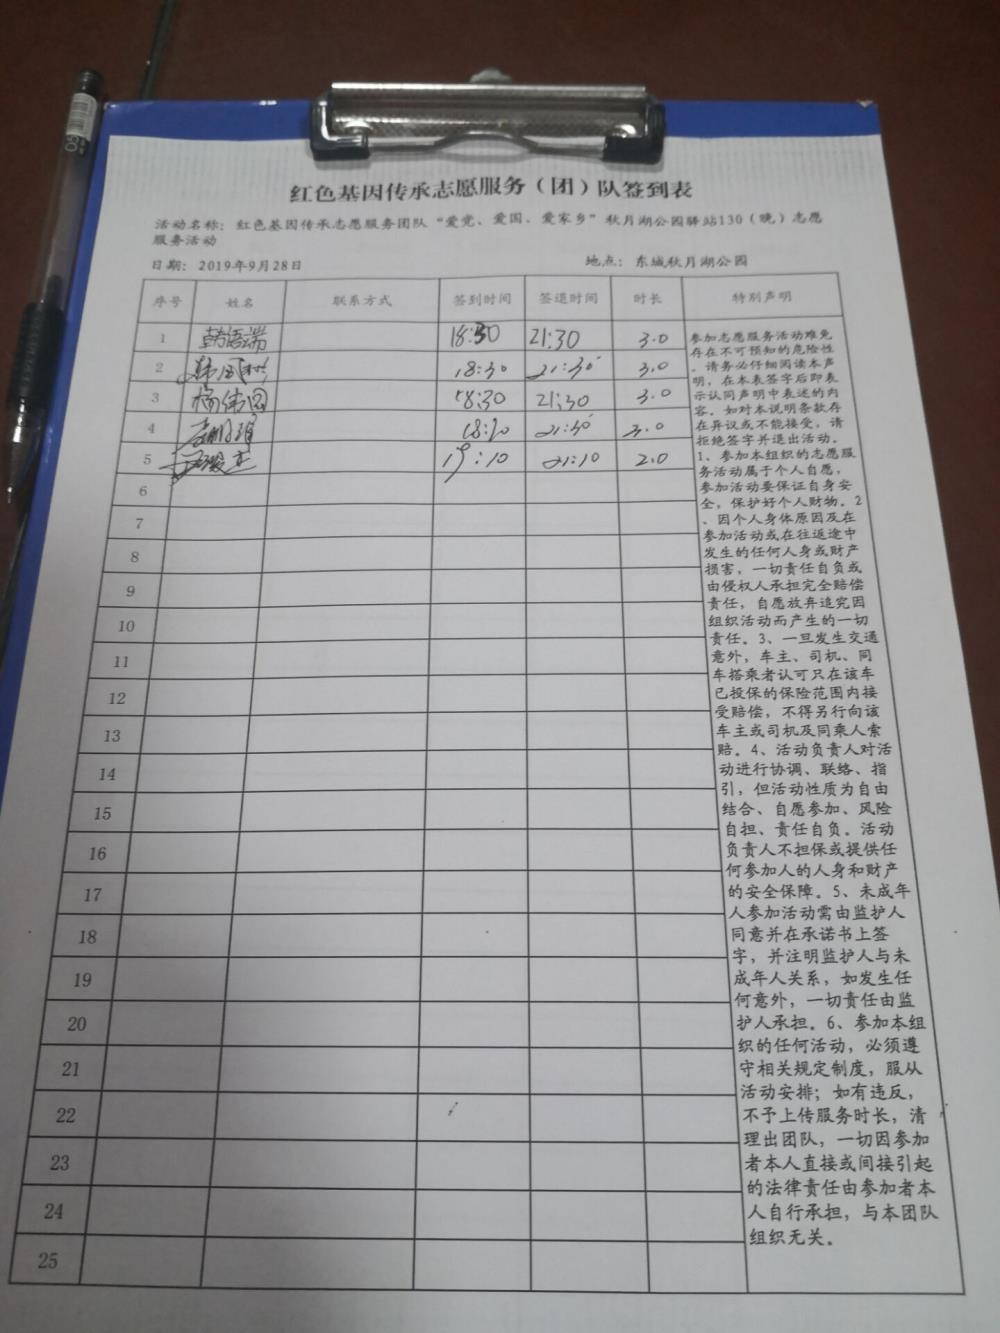 红色基因传承志愿服务（团）队签到表
活动名称：红色基因传承志愿服务团队“爱党、爱国、爱家乡”秋月湖公园驿站130（晚）志愿
服务活动
日期：2019年9月28日 地点：东城秋月湖公园
序号 姓名 联系方式 签到时间 签退时间 时长 特别声明
1 18:30 21:30 3.0
2 18:30 21:30 3.0
3 18:30 21:30 3.0
4 21:30 3.0
5 19:10 21:10 2.0
6
7
8
9
10
11
12
13
14
15
16
17
18
19
20
21
22
23
24
25
参加志愿服务活动难免
存在不可预知的危险性
。请务必仔细阅读本声
明，在本表签字后即表
示认同声明中表述的内
容。如对本说明条款存
在异议或不能接受，请
拒绝签字并退出活动。
1、参加本组织的志愿服
务活动属于个人自愿，
参加活动要保证自身安
全，保护好个人财物。2
、因个人身体原因及在
参加活动或在往返途中
发生的任何人身或财产
损害，一切责任自负或
由侵权人承担完全赔偿
责任，自愿放弃追究因
组织活动而产生的一切
责任。3、一旦发生交通
意外，车主、司机、同
车搭乘者认可只在该车
已投保的保险范围内接
受赔偿，不得另行向该
车主或司机及同乘人索
赔。4、活动负责人对活
动进行协调、联络、指
引，但活动性质为自由
结合、自愿参加、风险
自担、责任自负。活动
负责人不担保或提供任
何参加人的人身和财产
的安全保障。5、未成年
人参加活动需由监护人
同意并在承诺书上签
字，并注明监护人与未
成年人关系，如发生任
何意外，一切责任由监
护人承担。6、参加本组
织的任何活动，必须遵
守相关规定制度，服从
活动安排；如有违反，
不予上传服务时长，清
理出团队，一切因参加
者本人直接或间接引起
的法律责任由参加者本
人自行承担，与本团队
组织无关。